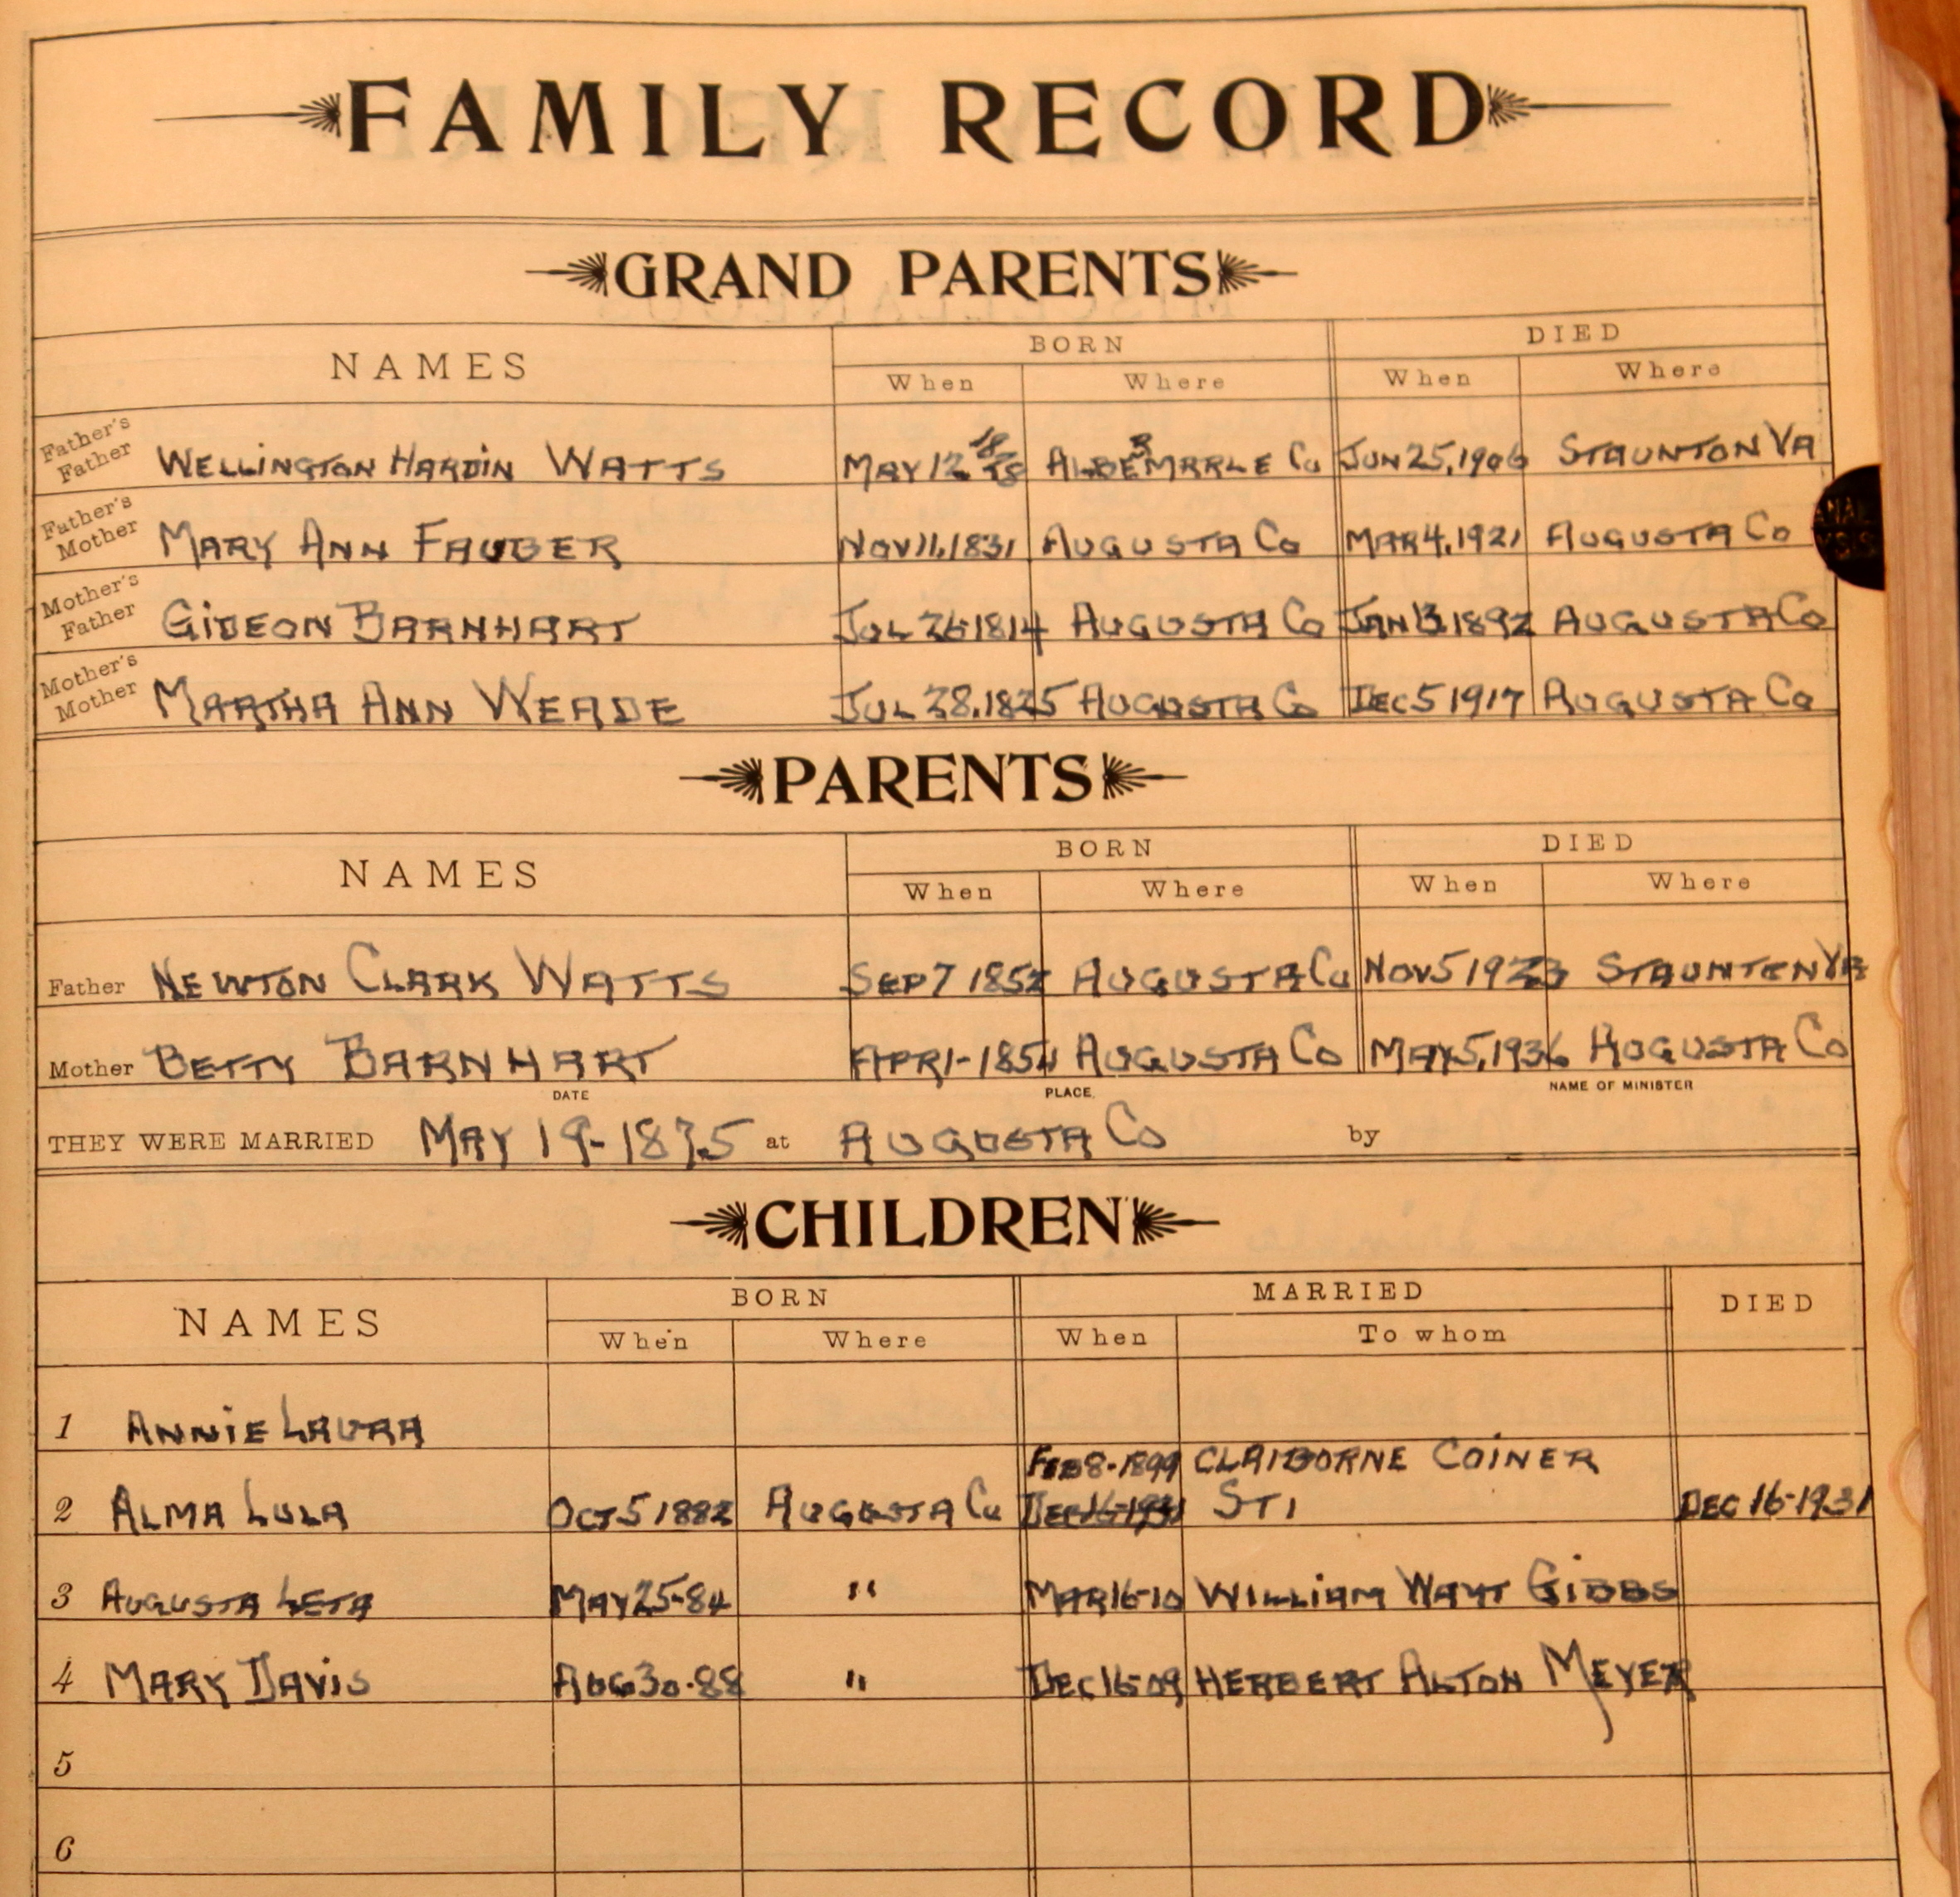 FAMILY RECORD
GRAND PARENTS
NAMES BORN DIED
When Where When Where
Father's Father WELLINGTON HARDIN WATTS MAY 12 18 ALBEMARLE Co JUN 25, 1906 STAUNTON VA
Father's Mother MARY ANN FAUBER NOV 11, 1831 AUGUSTA Co MAR 4, 1921 AUGUSTA Co
Mother's Father GIDEON BARNHART JUL 26 1814 AUGUSTA Co JAN 13, 1892 AUGUSTA Co
Mother's Mother MARTHA ANN WEADE JUL 28, 1825 AUGUSTA Co DEC 5 1917 AUGUSTA Co
PARENTS
NAMES BORN DIED
When Where When Where
Father NEWTON CLARK WATTS SEP 7 1852 AUGUSTA Co NOV 5 1923 STAUNTEN VA
Mother BETTY BARNHART APR 1-1854 AUGUSTA Co MAY 5, 1936 AUGUSTA Co
DATE PLACE NAME OF MINISTER
THEY WERE MARRIED MAY 19-1875 at AUGUSTA Co by
CHILDREN
NAMES BORN MARRIED DIED
When Where When To whom
1 ANNIE LAURA
FEB 8-1899 CLAIBORNE COINER
2 ALMA LULA OCT 5 1882 AUGUSTA Co DEC 16-1931 STI DEC 16-1931
3 AUGUSTA LETA MAY 25-84 " MAR 16-10 WILLIAM WAYT GIBBS
4 MARY DAVIS AUG 30-88 " DEC 16-09 HERBERT ALTON MEYER
5
6